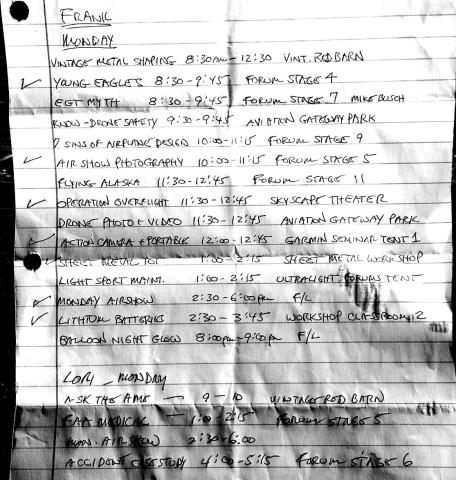 FRANK
MONDAY
VINTAGE METAL SHAPING 8:30AM - 12:30 VINT. RED BARN
✓ YOUNG EAGLES 8:30 - 9:45 FORUM STAGE 4
EGT MYTH 8:30 - 9:45 FORUM STAGE 7 MIKE BUSCH
KNOW-DRONE SAFETY 9:30 - 9:45 AVIATION GATEWAY PARK
7 SINS OF AIRPLANE DESIGN 10:00 - 11:15 FORUM STAGE 9
✓ AIR SHOW PHOTOGRAPHY 10:00 - 11:15 FORUM STAGE 5
FLYING ALASKA 11:30 - 12:45 FORUM STAGE 11
✓ OPERATION OVERFLIGHT 11:30 - 12:45 SKYSCAPE THEATER
DRONE PHOTO + VIDEO 11:30 - 12:45 AVIATION GATEWAY PARK
✓ ACTION CAMERA + PORTABLE 12:00 - 12:45 GARMIN SEMINAR TENT 1
✓ SHEET METAL 101 1:00 - 2:15 SHEET METAL WORKSHOP
LIGHT SPORT MAINT. 1:00 - 2:15 ULTRALIGHT FORUMS TENT
✓ MONDAY AIRSHOW 2:30 - 6:00pm F/L
✓ LITHIUM BATTERIES 2:30 - 3:45 WORKSHOP CLASSROOM 2
BALLOON NIGHT GLOW 8:00pm - 9:00pm F/L
LORI - MONDAY
ASK THE AME - 9 - 10 VINTAGE RED BARN
FAA MEDICAL - 1:00 - 2:15 FORUM STAGE 5
MON. AIRSHOW 2:30 - 6:00
ACCIDENT CASE STUDY 4:00 - 5:15 FORUM STAGE 6